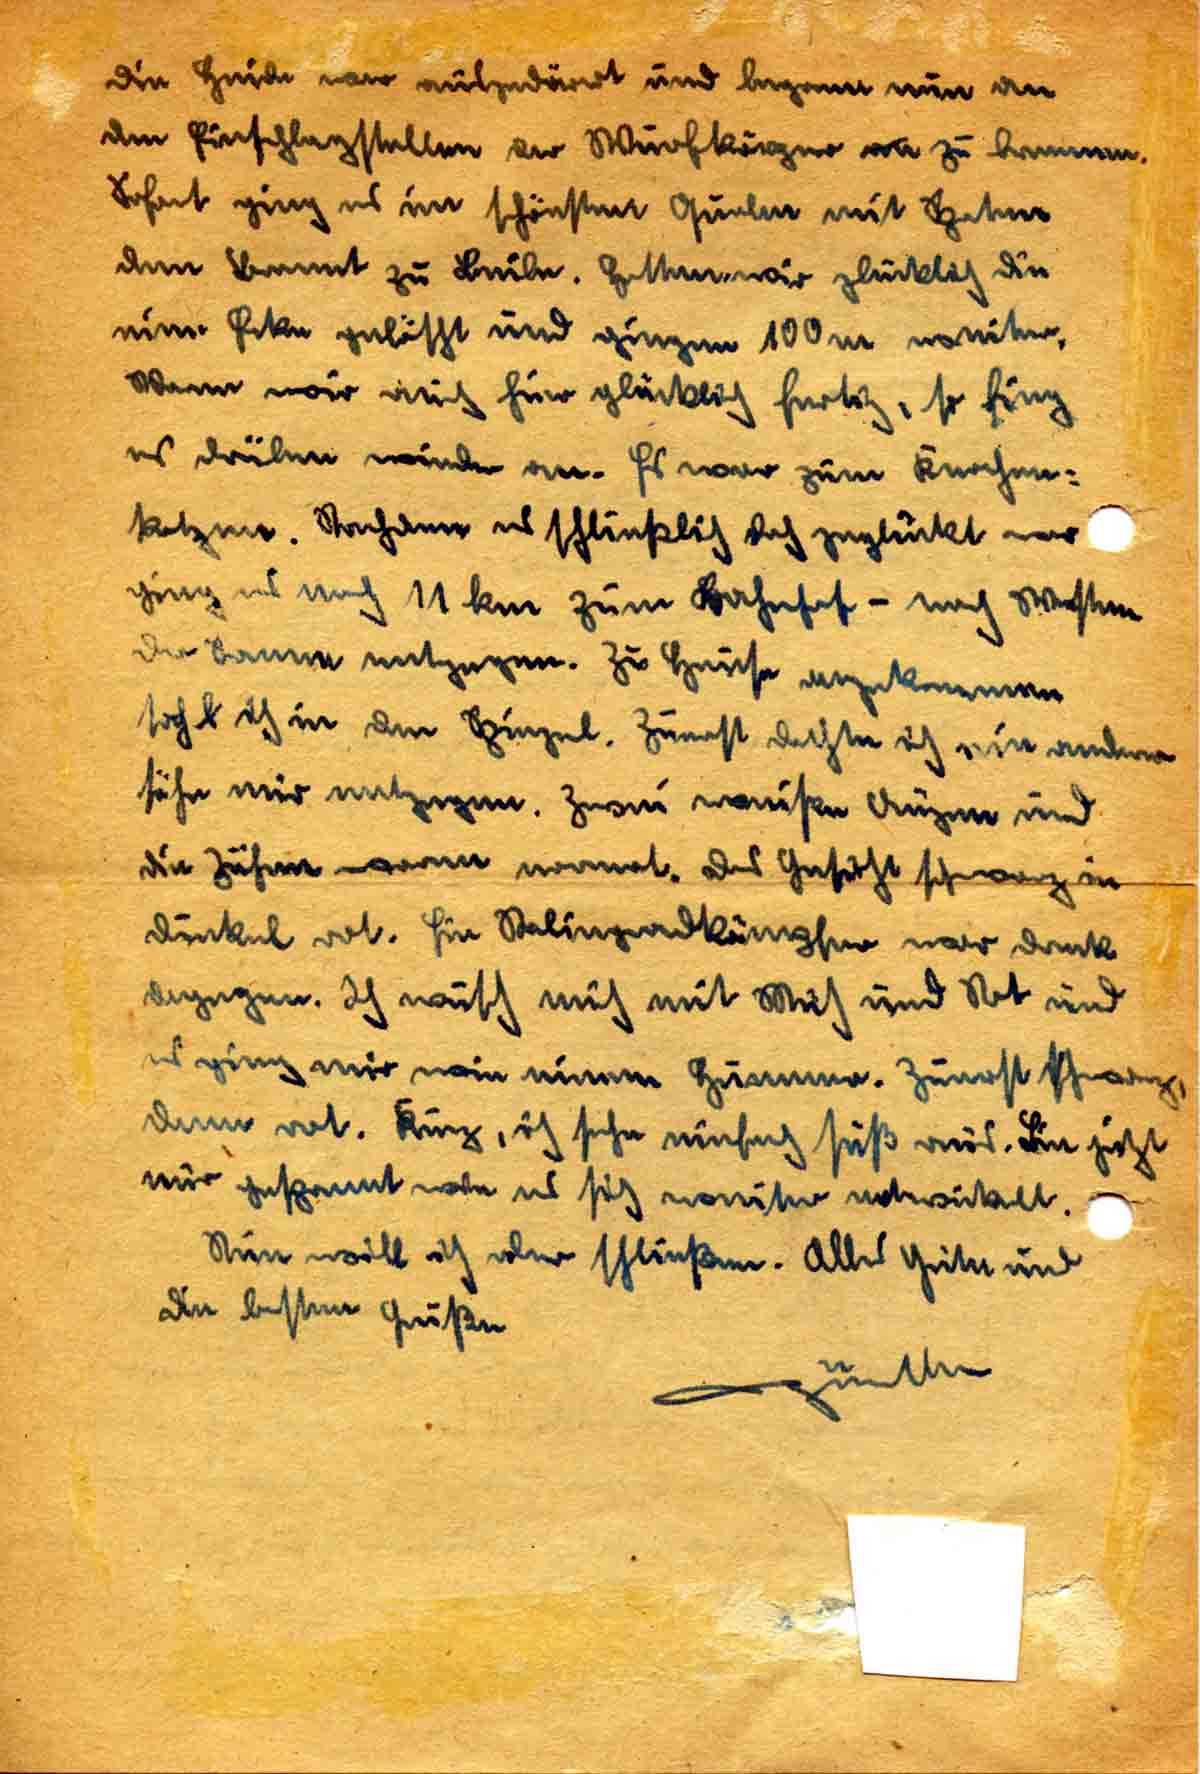 die Heide war ausgedörrt und begann nun an
den Einschlagstellen der Wurfkörper zu brennen.
Sofort ging es im schönsten Qualm mit Spaten
dem Brand zu Leibe. Hatten wir glücklich die
eine Ecke gelöscht und gingen 100 m weiter,
Waren wir auch hier glücklich fertig, so fing
es drüben wieder an. Es war zum Knochen=
kotzen. Nachdem es schließlich doch geglückt war
ging es noch 11 km zum Bahnhof – nach Westen
der Sonne entgegen. Zu Hause angekommen
sah ich in den Spiegel. Zuerst dachte ich ein anderer
sähe mir entgegen. Zwei weiße Augen und
die Zähne waren normal. Das Gesicht schwarz in
dunkel rot. Ein Stalingradkämpfer war Dreck
dagegen. Ich wusch mich mit Müh und Not und
es ging mir wie einem Hummer. Zuerst schwarz,
dann rot. Kurz, ich sehe einfach süß aus. Bin jetzt
nur gespannt wie es sich weiter entwickelt.
Nun will ich aber schließen. Alles Gute und
die besten Grüße
Günther